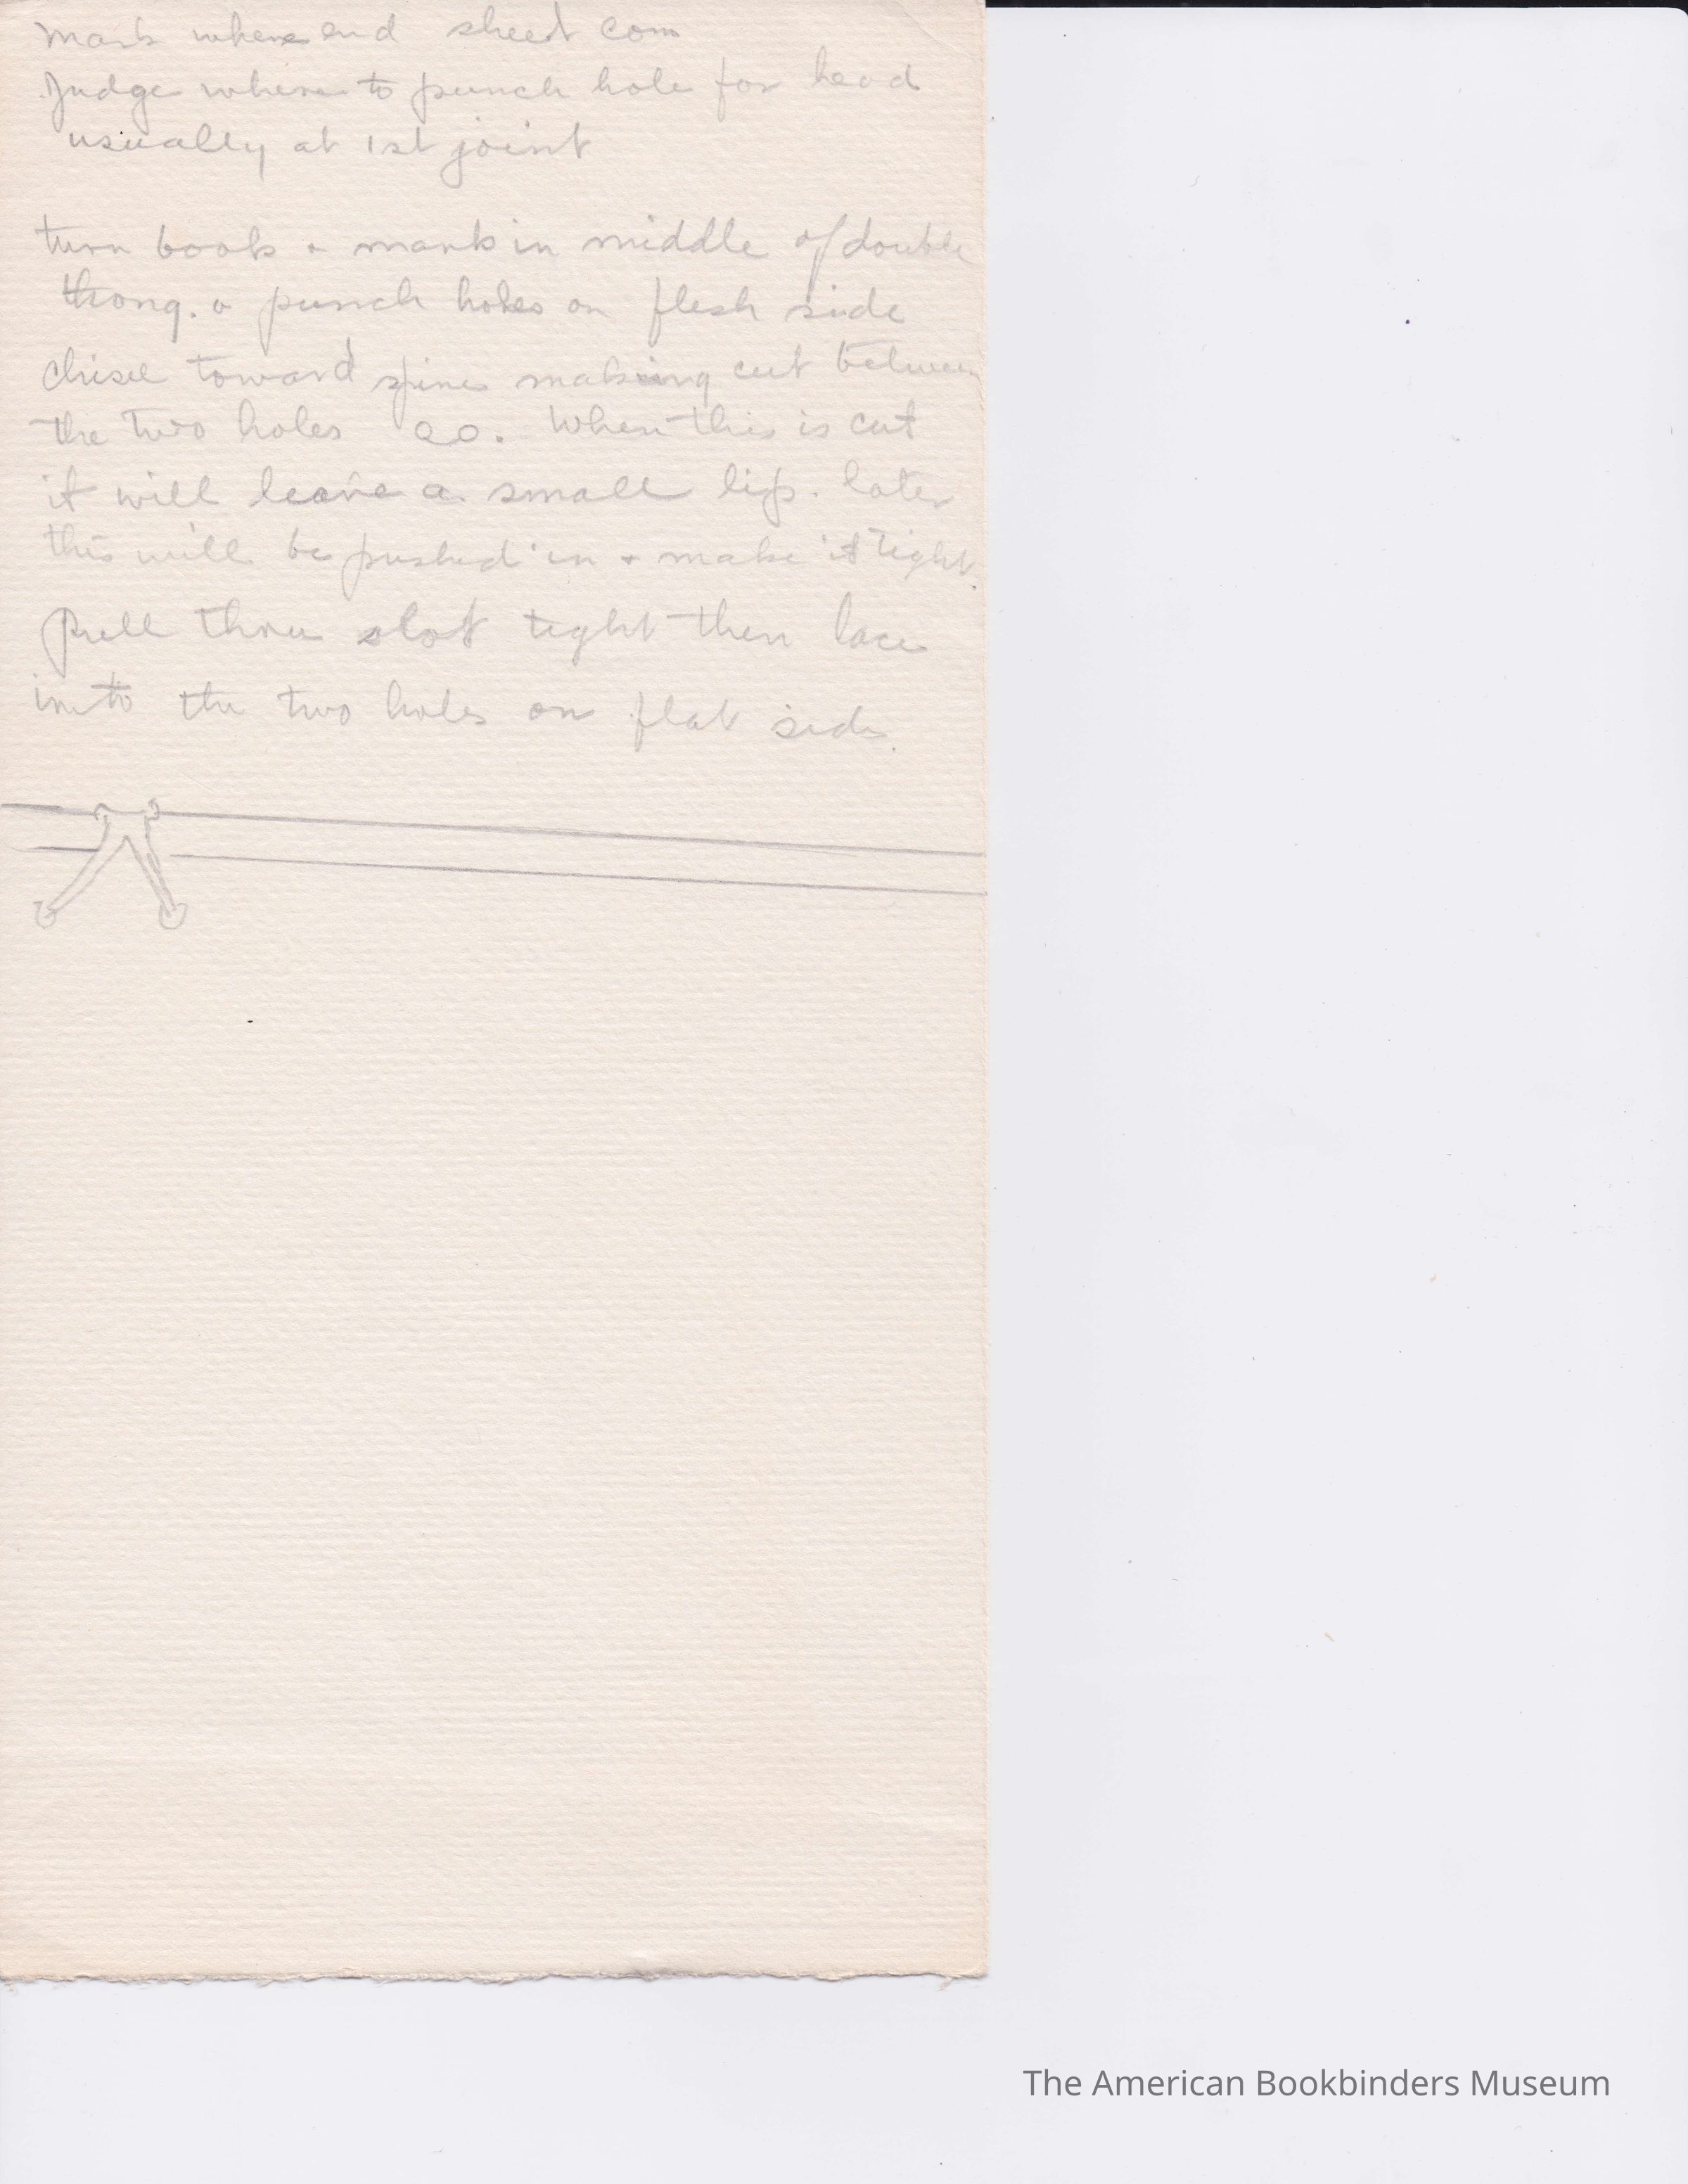 Mark where end sheet com
Judge where to punch hole for head
usually at 1st joint
turn book + mark in middle of double
thong. + punch holes on flesh side
chisel toward spine making cut between
the two holes oo. When this is cut
it will leave a small lip. later
this will be pushed in + make it tight.
Pull thru slot tight then lace
into the two holes on flat side.
The American Bookbinders Museum